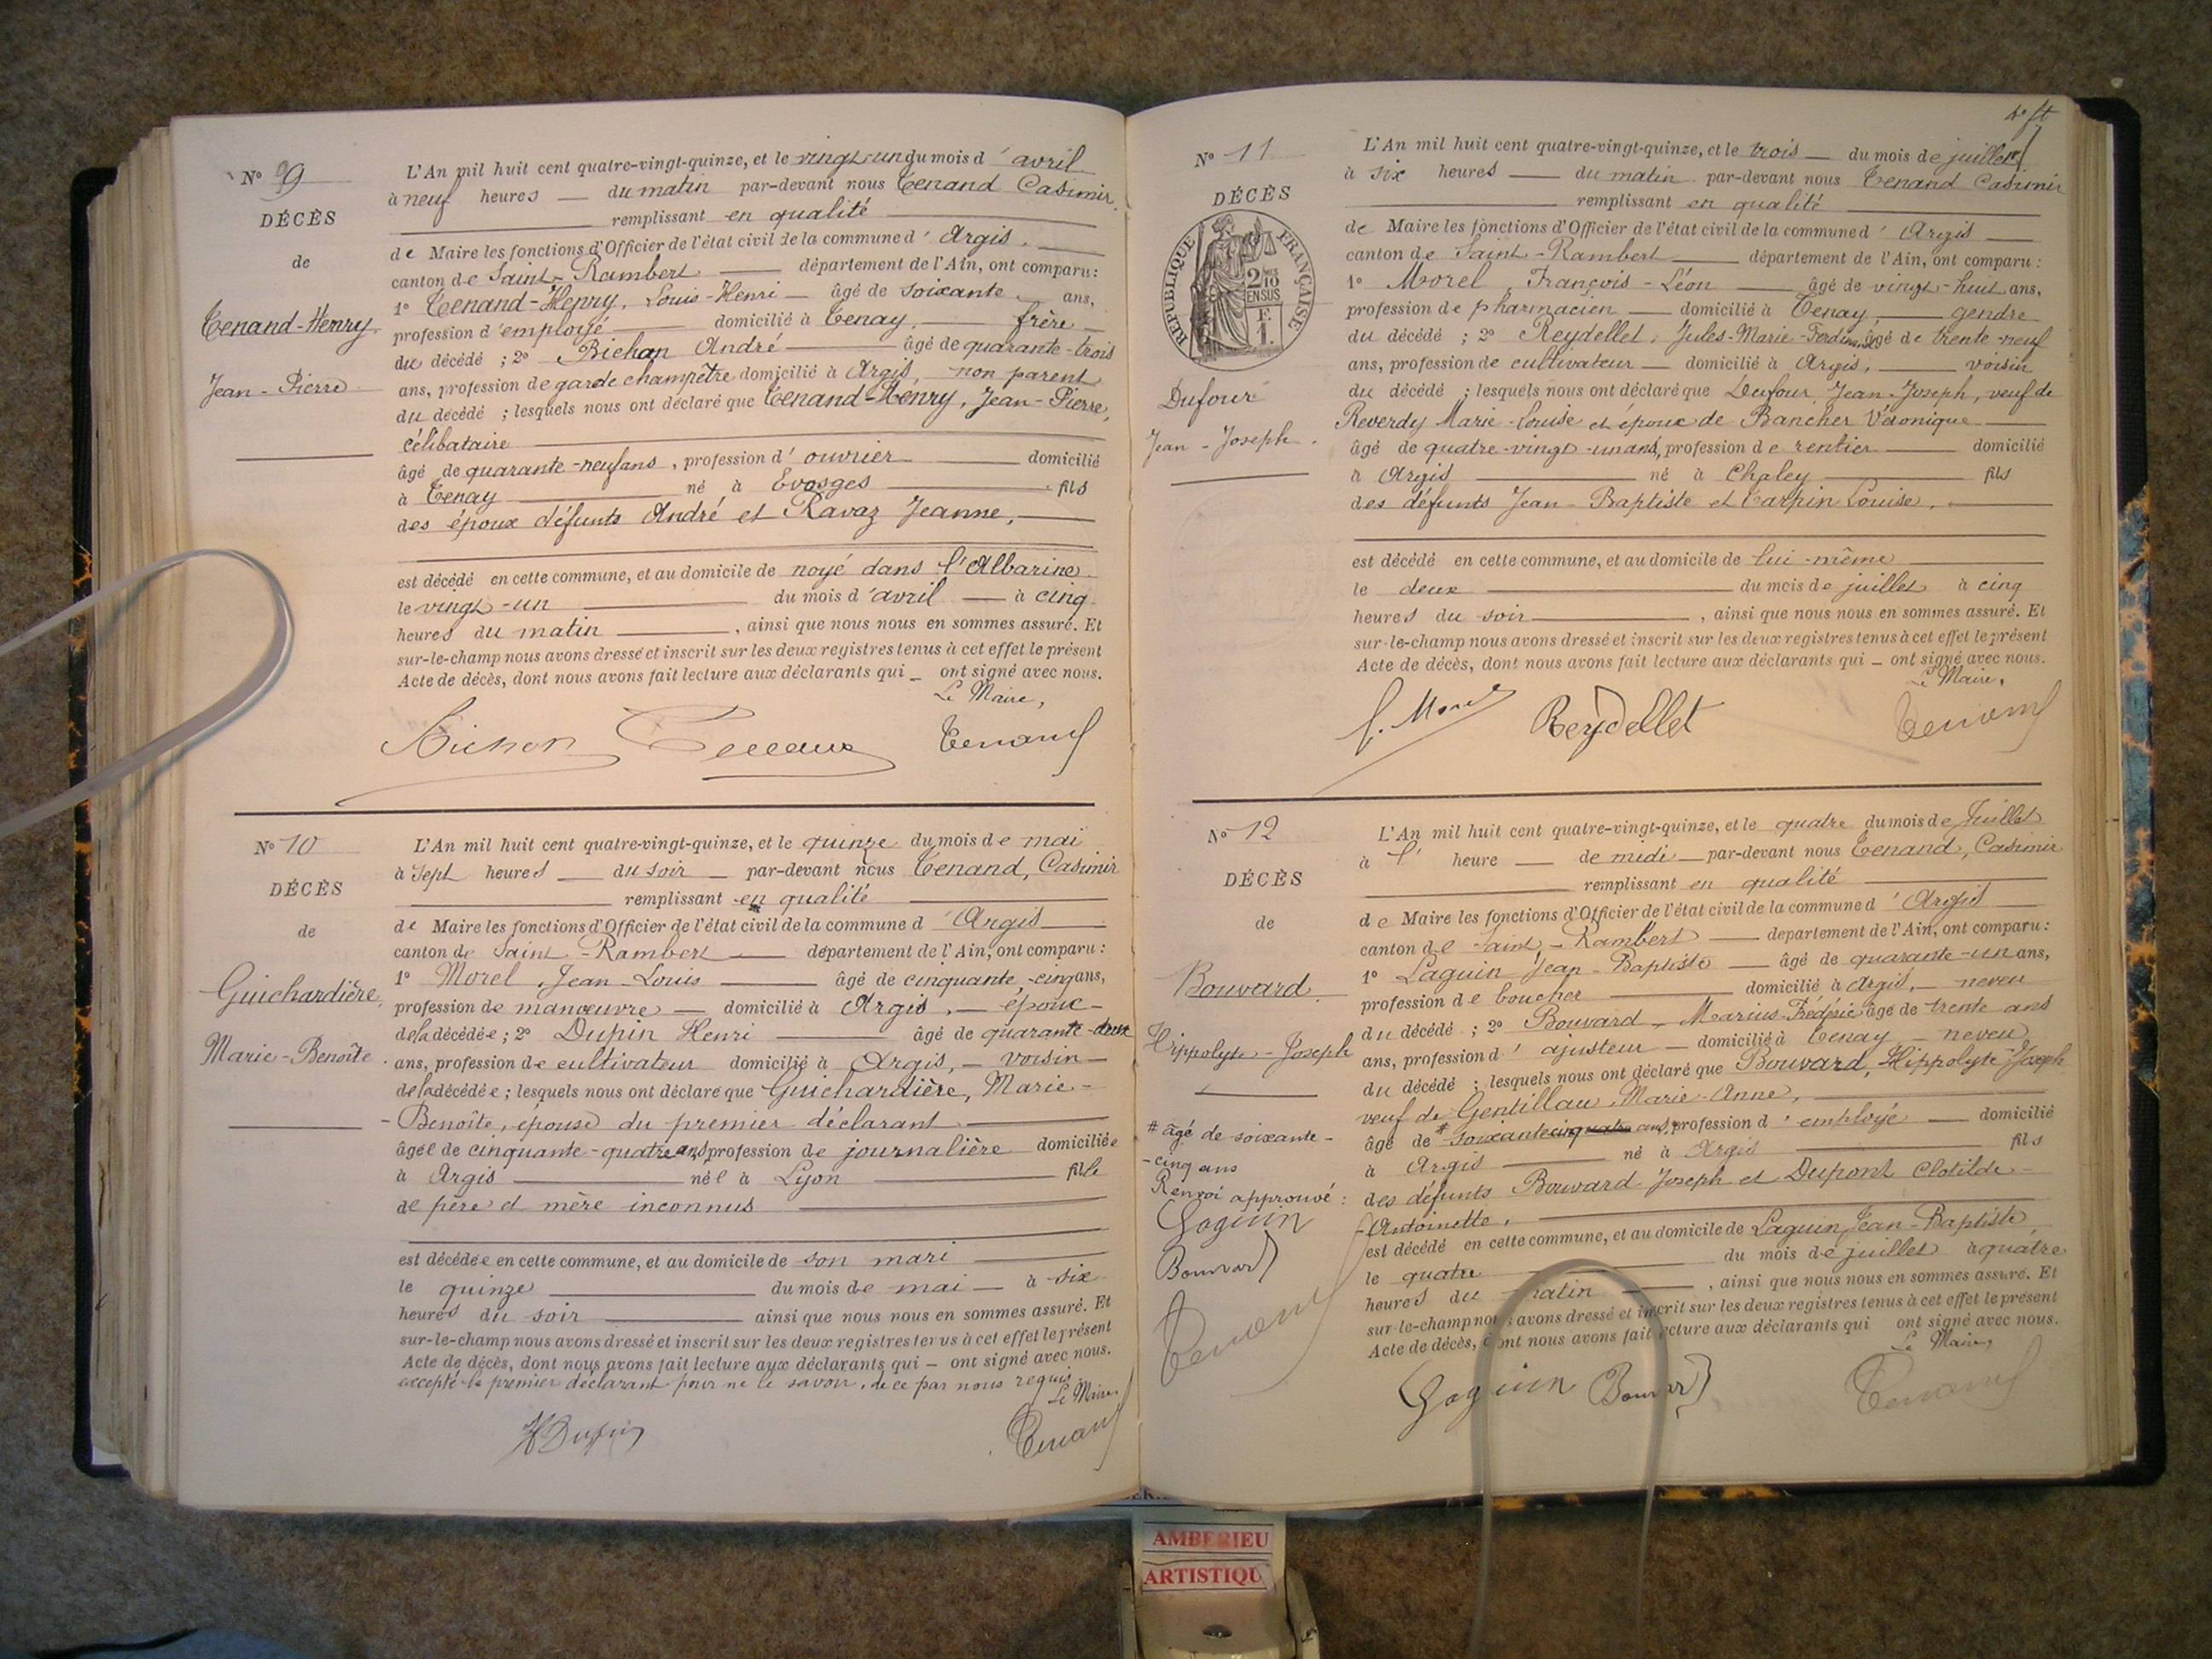 N° 9
DÉCÈS
de
Tenand-Henry
Jean-Pierre
L'An mil huit cent quatre-vingt-quinze, et le vingt-un du mois d'avril
à neuf heures du matin par-devant nous Tenand Casimir
remplissant en qualité
de Maire les fonctions d'Officier de l'état civil de la commune d'Argis.
canton de Saint-Rambert département de l'Ain, ont comparu :
1° Tenand-Henry, Louis-Henri âgé de soixante ans,
profession d'employé domicilié à Tenay, frère
du décédé ; 2° Richan André âgé de quarante-trois
ans, profession de garde champêtre domicilié à Argis, non parent
du décédé ; lesquels nous ont déclaré que Tenand-Henry, Jean-Pierre,
célibataire
âgé de quarante-neuf ans, profession d'ouvrier domicilié
à Tenay né à Evosges fils
des époux défunts André et Ravaz Jeanne,
est décédé en cette commune, et au domicile de noyé dans l'Albarine
le vingt-un du mois d'avril à cinq
heures du matin, ainsi que nous nous en sommes assuré. Et
sur-le-champ nous avons dressé et inscrit sur les deux registres tenus à cet effet le présent
Acte de décès, dont nous avons fait lecture aux déclarants qui ont signé avec nous.
Le Maire,
Tenand
N° 10
DÉCÈS
de
Guichardière
Marie-Benoîte
L'An mil huit cent quatre-vingt-quinze, et le quinze du mois de mai
à sept heures du soir par-devant nous Tenand, Casimir
remplissant en qualité
de Maire les fonctions d'Officier de l'état civil de la commune d'Argis
canton de Saint-Rambert département de l'Ain, ont comparu :
1° Morel, Jean-Louis âgé de cinquante-cinq ans,
profession de manœuvre domicilié à Argis, époux
de la décédée ; 2° Dupin Henri âgé de quarante-deux
ans, profession de cultivateur domicilié à Argis, voisin
de la décédée ; lesquels nous ont déclaré que Guichardière, Marie-
-Benoîte, épouse du premier déclarant
âgée de cinquante-quatre ans, profession de journalière domiciliée
à Argis née à Lyon fille
de père et mère inconnus
est décédée en cette commune, et au domicile de son mari
le quinze du mois de mai à six
heures du soir ainsi que nous nous en sommes assuré. Et
sur-le-champ nous avons dressé et inscrit sur les deux registres tenus à cet effet le présent
Acte de décès, dont nous avons fait lecture aux déclarants qui ont signé avec nous.
excepté le premier déclarant pour ne le savoir, de ce par nous requis.
Le Maire,
H Dupin Tenand
N° 11
DÉCÈS
RÉPUBLIQUE FRANÇAISE
2/10 EN SUS
F. 1.
Dufour
Jean-Joseph.
L'An mil huit cent quatre-vingt-quinze, et le trois du mois de juillet
à six heures du matin par-devant nous Tenand Casimir
remplissant en qualité
de Maire les fonctions d'Officier de l'état civil de la commune d'Argis
canton de Saint-Rambert département de l'Ain, ont comparu :
1° Morel, François-Léon âgé de vingt-huit ans,
profession de pharmacien domicilié à Tenay, gendre
du décédé ; 2° Reydellet, Jules-Marie-Ferdinand âgé de trente-neuf
ans, profession de cultivateur domicilié à Argis, voisin
du décédé ; lesquels nous ont déclaré que Dufour, Jean-Joseph, veuf de
Reverdy Marie-Louise et époux de Bancher Véronique
âgé de quatre-vingt-un ans, profession de rentier domicilié
à Argis né à Chaley fils
des défunts Jean-Baptiste et Carpin Louise.
est décédé en cette commune, et au domicile de lui-même
le deux du mois de juillet à cinq
heures du soir, ainsi que nous nous en sommes assuré. Et
sur-le-champ nous avons dressé et inscrit sur les deux registres tenus à cet effet le présent
Acte de décès, dont nous avons fait lecture aux déclarants qui ont signé avec nous.
Le Maire,
Reydellet Tenand
N° 12
DÉCÈS
de
Bouvard
Hippolyte-Joseph
# âgé de soixante-
-cinq ans
Renvoi approuvé :
Goguin
Bouvard
Tenand
L'An mil huit cent quatre-vingt-quinze, et le quatre du mois de Juillet
à l' heure de midi par-devant nous Tenand, Casimir
remplissant en qualité
de Maire les fonctions d'Officier de l'état civil de la commune d'Argis
canton de Saint-Rambert département de l'Ain, ont comparu :
1° Laguin Jean-Baptiste âgé de quarante-un ans,
profession de boucher domicilié à Argis, neveu
du décédé ; 2° Bouvard, Marius-Frédéric âgé de trente ans
ans, profession d'ajusteur domicilié à Tenay neveu
du décédé ; lesquels nous ont déclaré que Bouvard, Hippolyte-Joseph
veuf de Gentillau, Marie-Anne,
âgé de # soixante ans, profession d'employé domicilié
à Argis né à Argis fils
des défunts Bouvard Joseph et Dupont Clotilde-
-Antoinette,
est décédé en cette commune, et au domicile de Laguin Jean-Baptiste
le quatre du mois de juillet à quatre
heures du matin, ainsi que nous nous en sommes assuré. Et
sur-le-champ nous avons dressé et inscrit sur les deux registres tenus à cet effet le présent
Acte de décès, dont nous avons fait lecture aux déclarants qui ont signé avec nous.
Le Maire,
Goguin Bouvard Tenand
AMBERIEU
ARTISTIQU